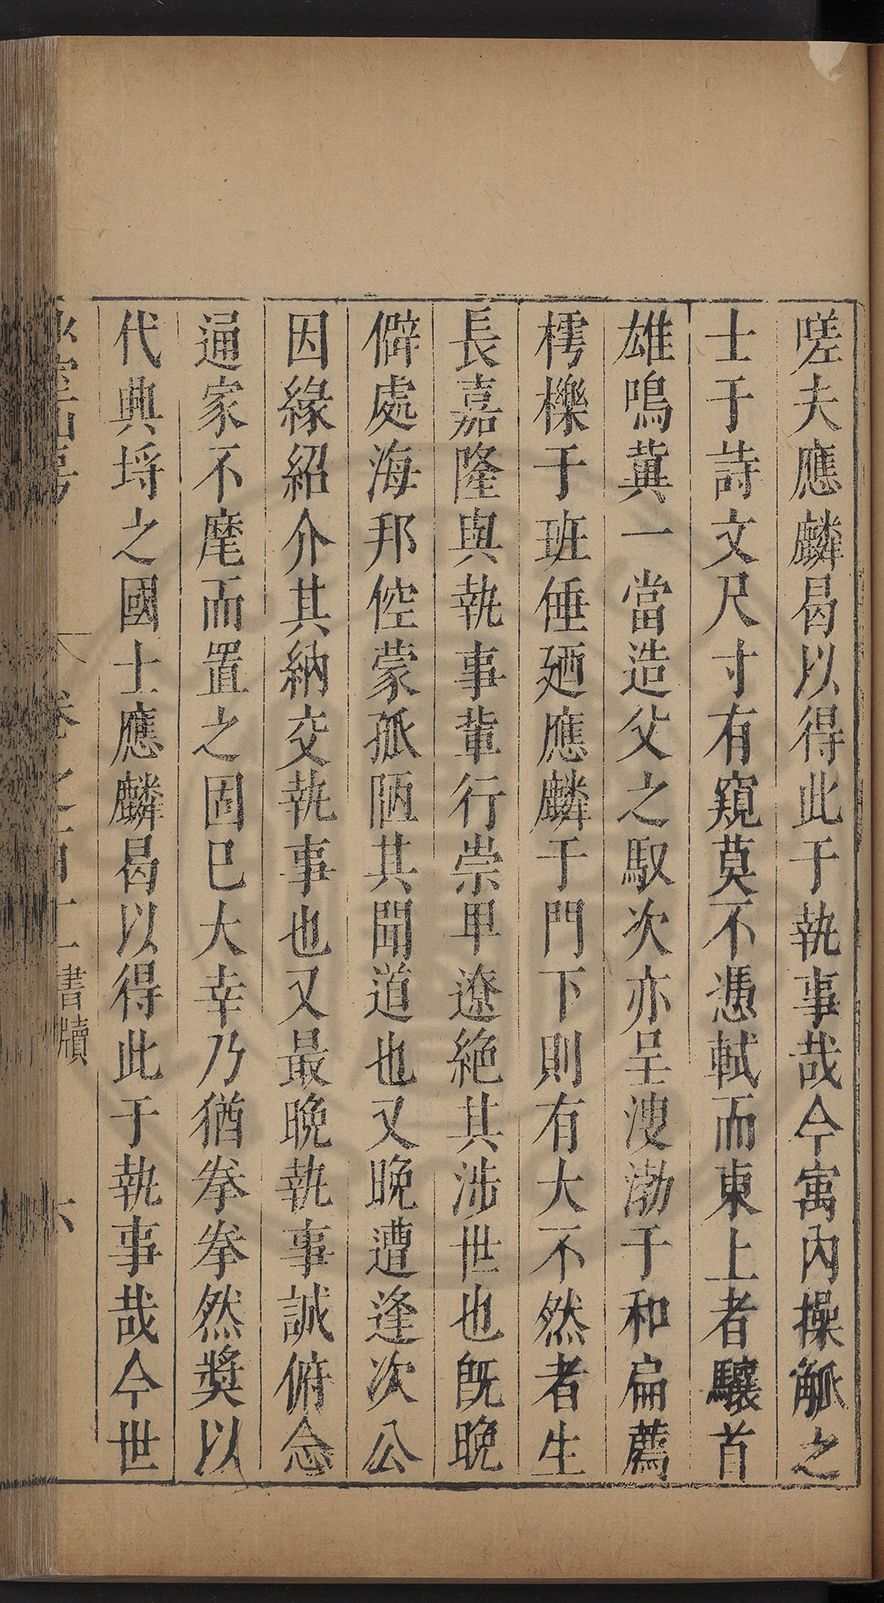 嗟夫應麟曷以得此于執事哉今寓內操觚之
士于詩文尺寸有窺莫不憑軾而東上者驤首
雄鳴冀一當造父之馭次亦呈溲渤于和扁薦
樗櫟于班倕廼應麟于門下則有大不然者生
長嘉隆與執事輩行崇卑遼絶其涉世也旣晚
僻處海邦倥蒙孤陋其聞道也又晚遭逢次公
因緣紹介其納交執事也又最晚執事誠俯念
通家不麾而置之固已大幸乃猶拳拳然奬以
代興埒之國士應麟曷以得此于執事哉今世
卷之百十二 書牘 六